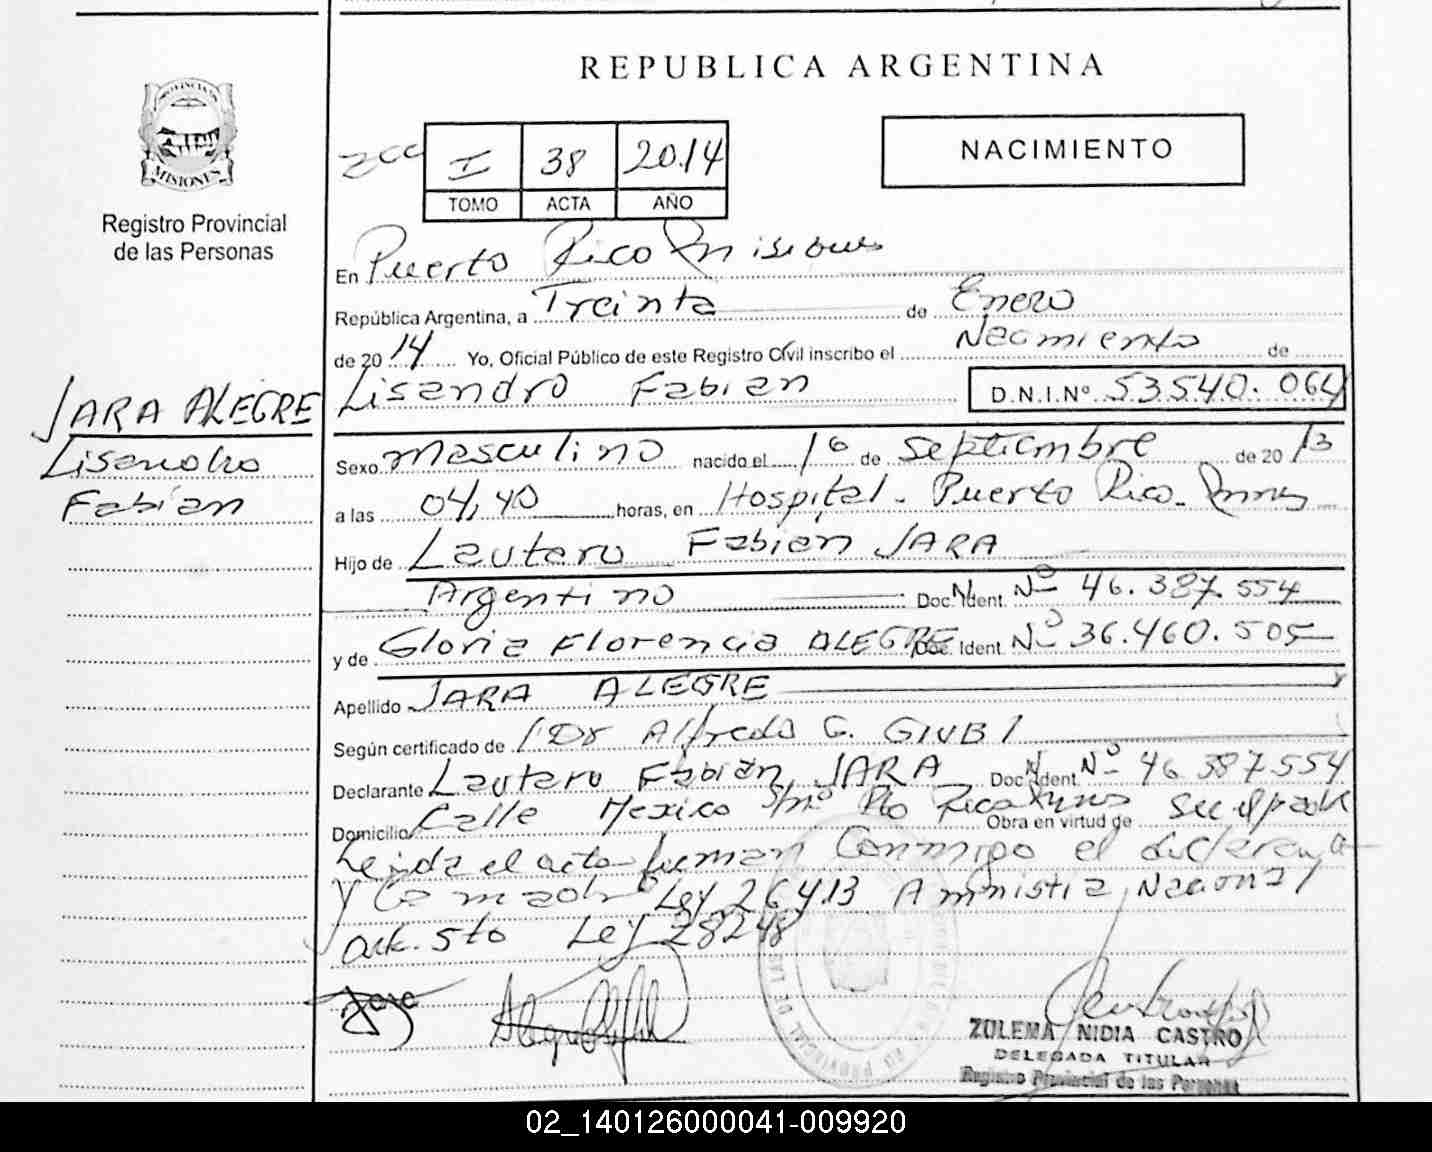 REPUBLICA ARGENTINA
PROVINCIA DE
MISIONES
Registro Provincial
de las Personas
I 38 2014
TOMO ACTA AÑO
NACIMIENTO
En Puerto Rico Misiones
República Argentina, a Treinta de Enero
de 2014 Yo, Oficial Público de este Registro Civil inscribo el Nacimiento de
Lisandro Fabian D.N.I.Nº 53540.064
JARA ALEGRE
Lisandro
Fabian
Sexo Masculino nacido el 16 de Septiembre de 2013
a las 04,40 horas, en Hospital - Puerto Rico -
Hijo de Lautaro Fabián JARA
Argentino Doc. N. Ident. Nº 46.387.554
y de Gloria Florencia ALEGRE Doc. Ident. Nº 36.460.505
Apellido JARA ALEGRE
Según certificado de Dr Alfredo G. GIUBI
Declarante Lautaro Fabián JARA Doc. N. Ident. Nº 46 387.554
Domicilio Calle Mexico Pto Rico Obra en virtud de ser el padre
Leida el acta firman Conmigo el declarante
y la madre Ley 26413 Amnistia Nacional
art. 5to Ley 28248
Jara
ZULEMA NIDIA CASTRO
DELEGADA TITULAR
Registro Provincial de las Personas
02_140126000041-009920